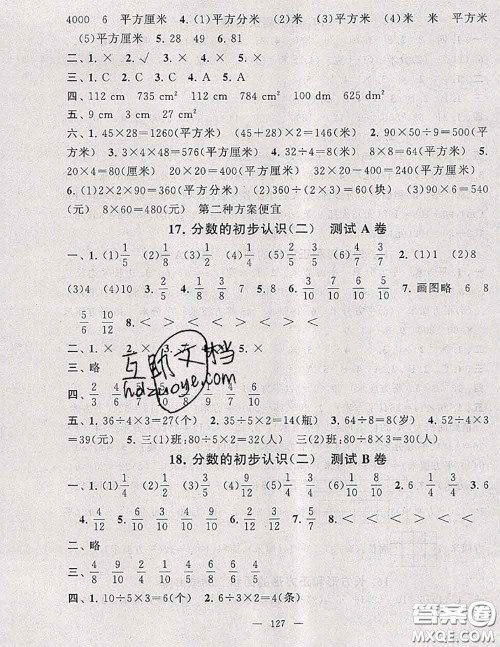 4000 6 平方厘米 4.(1)平方分米 (2)米 (3)平方厘米 (4)米 米 平方米
(5)平方厘米 5.28 49 6.81
二、1.× 2.√ 3.× 4.× 5.×
三、1.C 2.C 3.C 4.A 5.A
四、112 cm 735 cm² 112 cm 784 cm² 100 dm 625 dm²
五、9 cm 3 cm 27 cm²
六、1.45×28=1260(平方米) (45+28)×2=146(米) 2.90×50÷9=500(平
方米) 3.3×4×48=576(平方厘米) 4.32÷4=8(米) 8×8=64(平方米)
5.20×4=80(厘米) 20×20=400(平方厘米) 32×20-400=240(平方厘米)
6.(1)2×2×90=360(平方分米) (2)360÷(2×3)=60(块) (3)90×6=540
(元) 8×60=480(元) 第二种方案便宜
17. 分数的初步认识(二) 测试 A 卷
一、1.(1)1/5 (2)1/8 (3)1/4 (4)1/5 (5)2/5 3/5 (6)4/7 4/7 2.(1)1 (2)8
(3)4 (4)10 3.2/5 4.1/8 3/8 5.7 6.8 6/10 3/10 7/10 7.画图略 6 8
5/6 6/10 8.< < > < > < < >
二、1.× 2.× 4.× 5.×
三、略
四、2/3 4/6 4/6 6/10
五、1.36÷4×3=27(个) 2.35÷5×2=14(瓶) 3.64÷8=8(岁) 4.52÷4×3
=39(元) 5.三(1)班:80÷5×2=32(人) 三(2)班:80÷8×3=30(人)
18. 分数的初步认识(二) 测试 B 卷
4/12 5.6/10 4/10 6.8/12 4/12 7.2/6 3/5 8.< < < < > < > <
二、略
四、1.10÷5×3=6(个) 2.6÷3×2=4(条)
— 127 —
互助文档
hdzuoye.com
答案圈
MXQE.COM